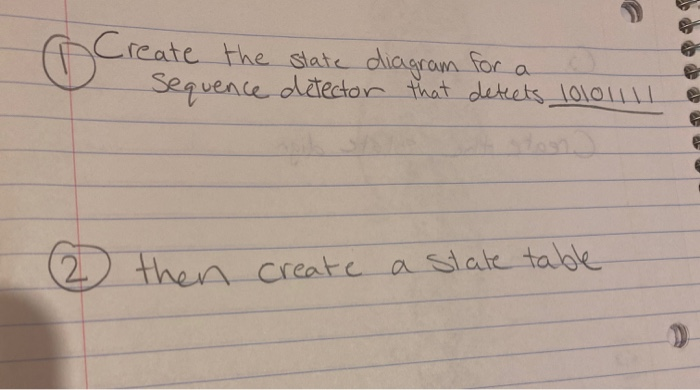 ① Create the state diagram for a
sequence detector that detects 10101111
② then create a state table